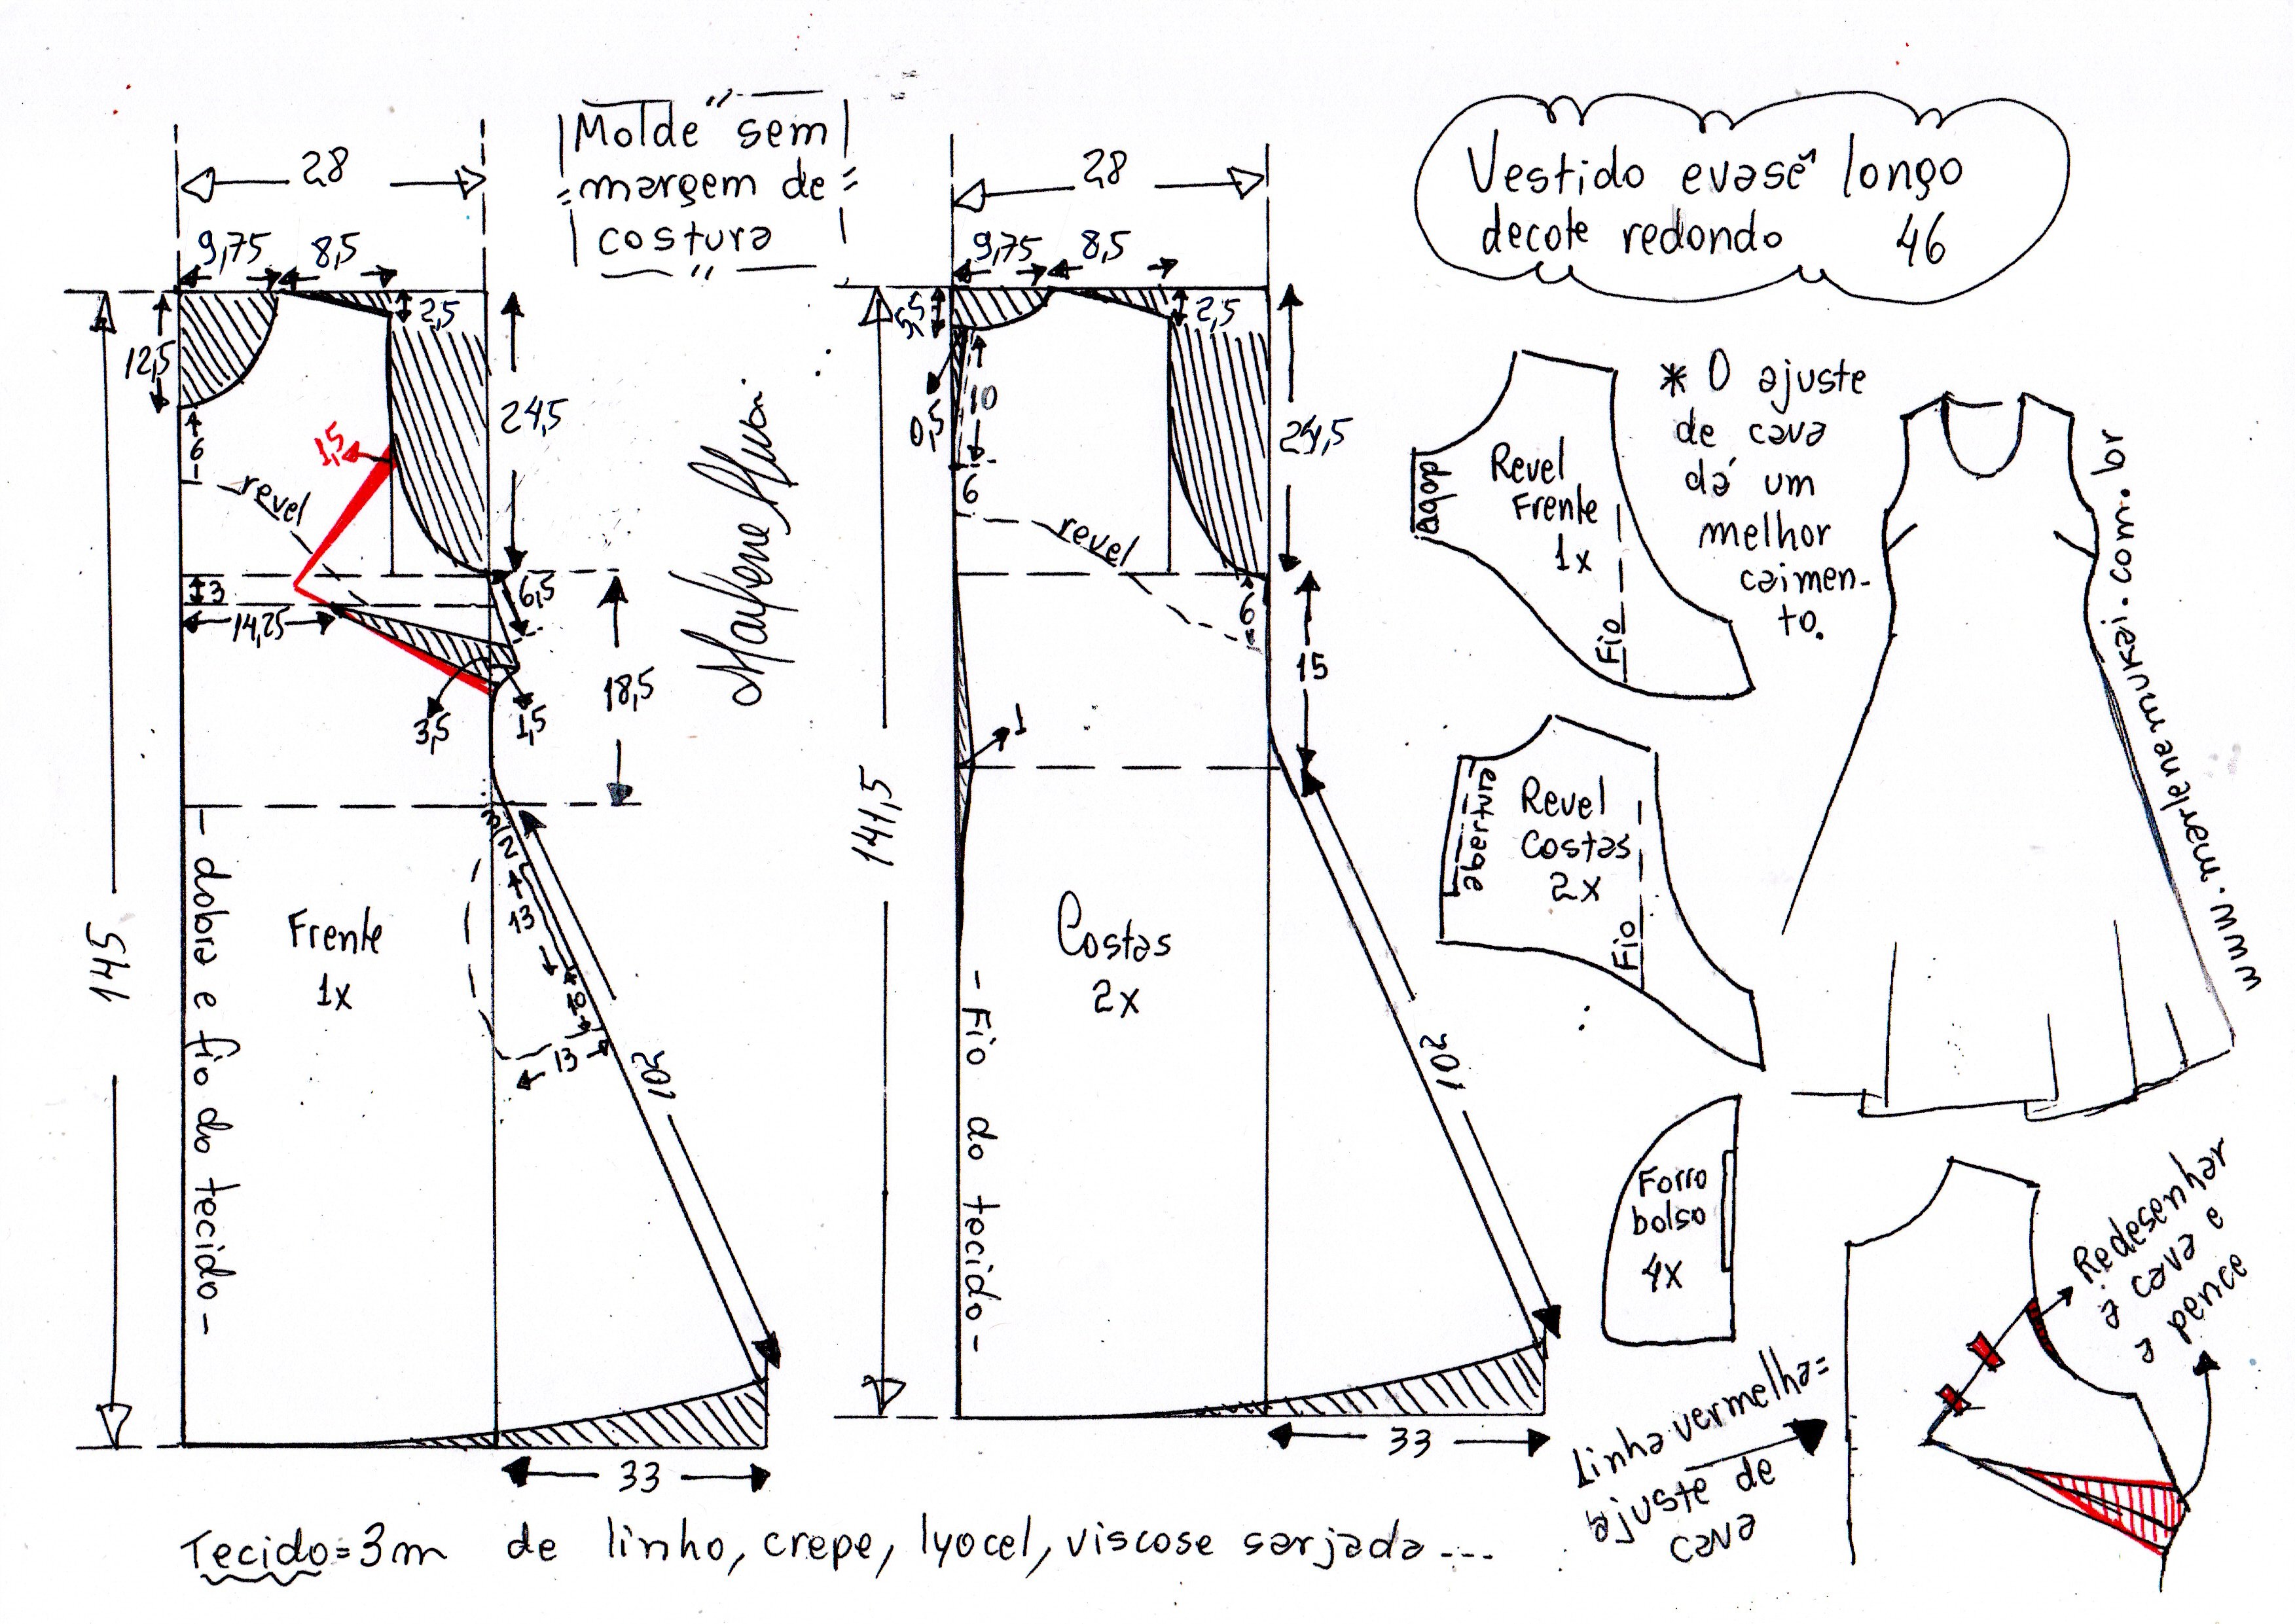 Molde sem
margem de
costura
Vestido evasê longo
decote redondo 46
28
9,75 8,5
2,5
12,5
24,5
6
1,5
revel
3
14,25
6,5
3,5
1,5
18,5
145
- dobra e fio do tecido -
Frente
1x
3
2
13
10
13
102
33
28
9,75 8,5
2,5
0,5
10
24,5
6
revel
6
15
1
141,5
Costas
2x
- Fio do tecido -
102
33
Revel
Frente
1x
dobra
Fio
* O ajuste
de cava
dá um
melhor
caimen-
to.
abertura
Revel
Costas
2x
Fio
www.marlenemukai.com.br
Forro
bolso
4x
Redesenhar
a cava e
a pence
Linha vermelha=
ajuste de
cava
Tecido=3m de linho, crepe, lyocel, viscose sarjada...